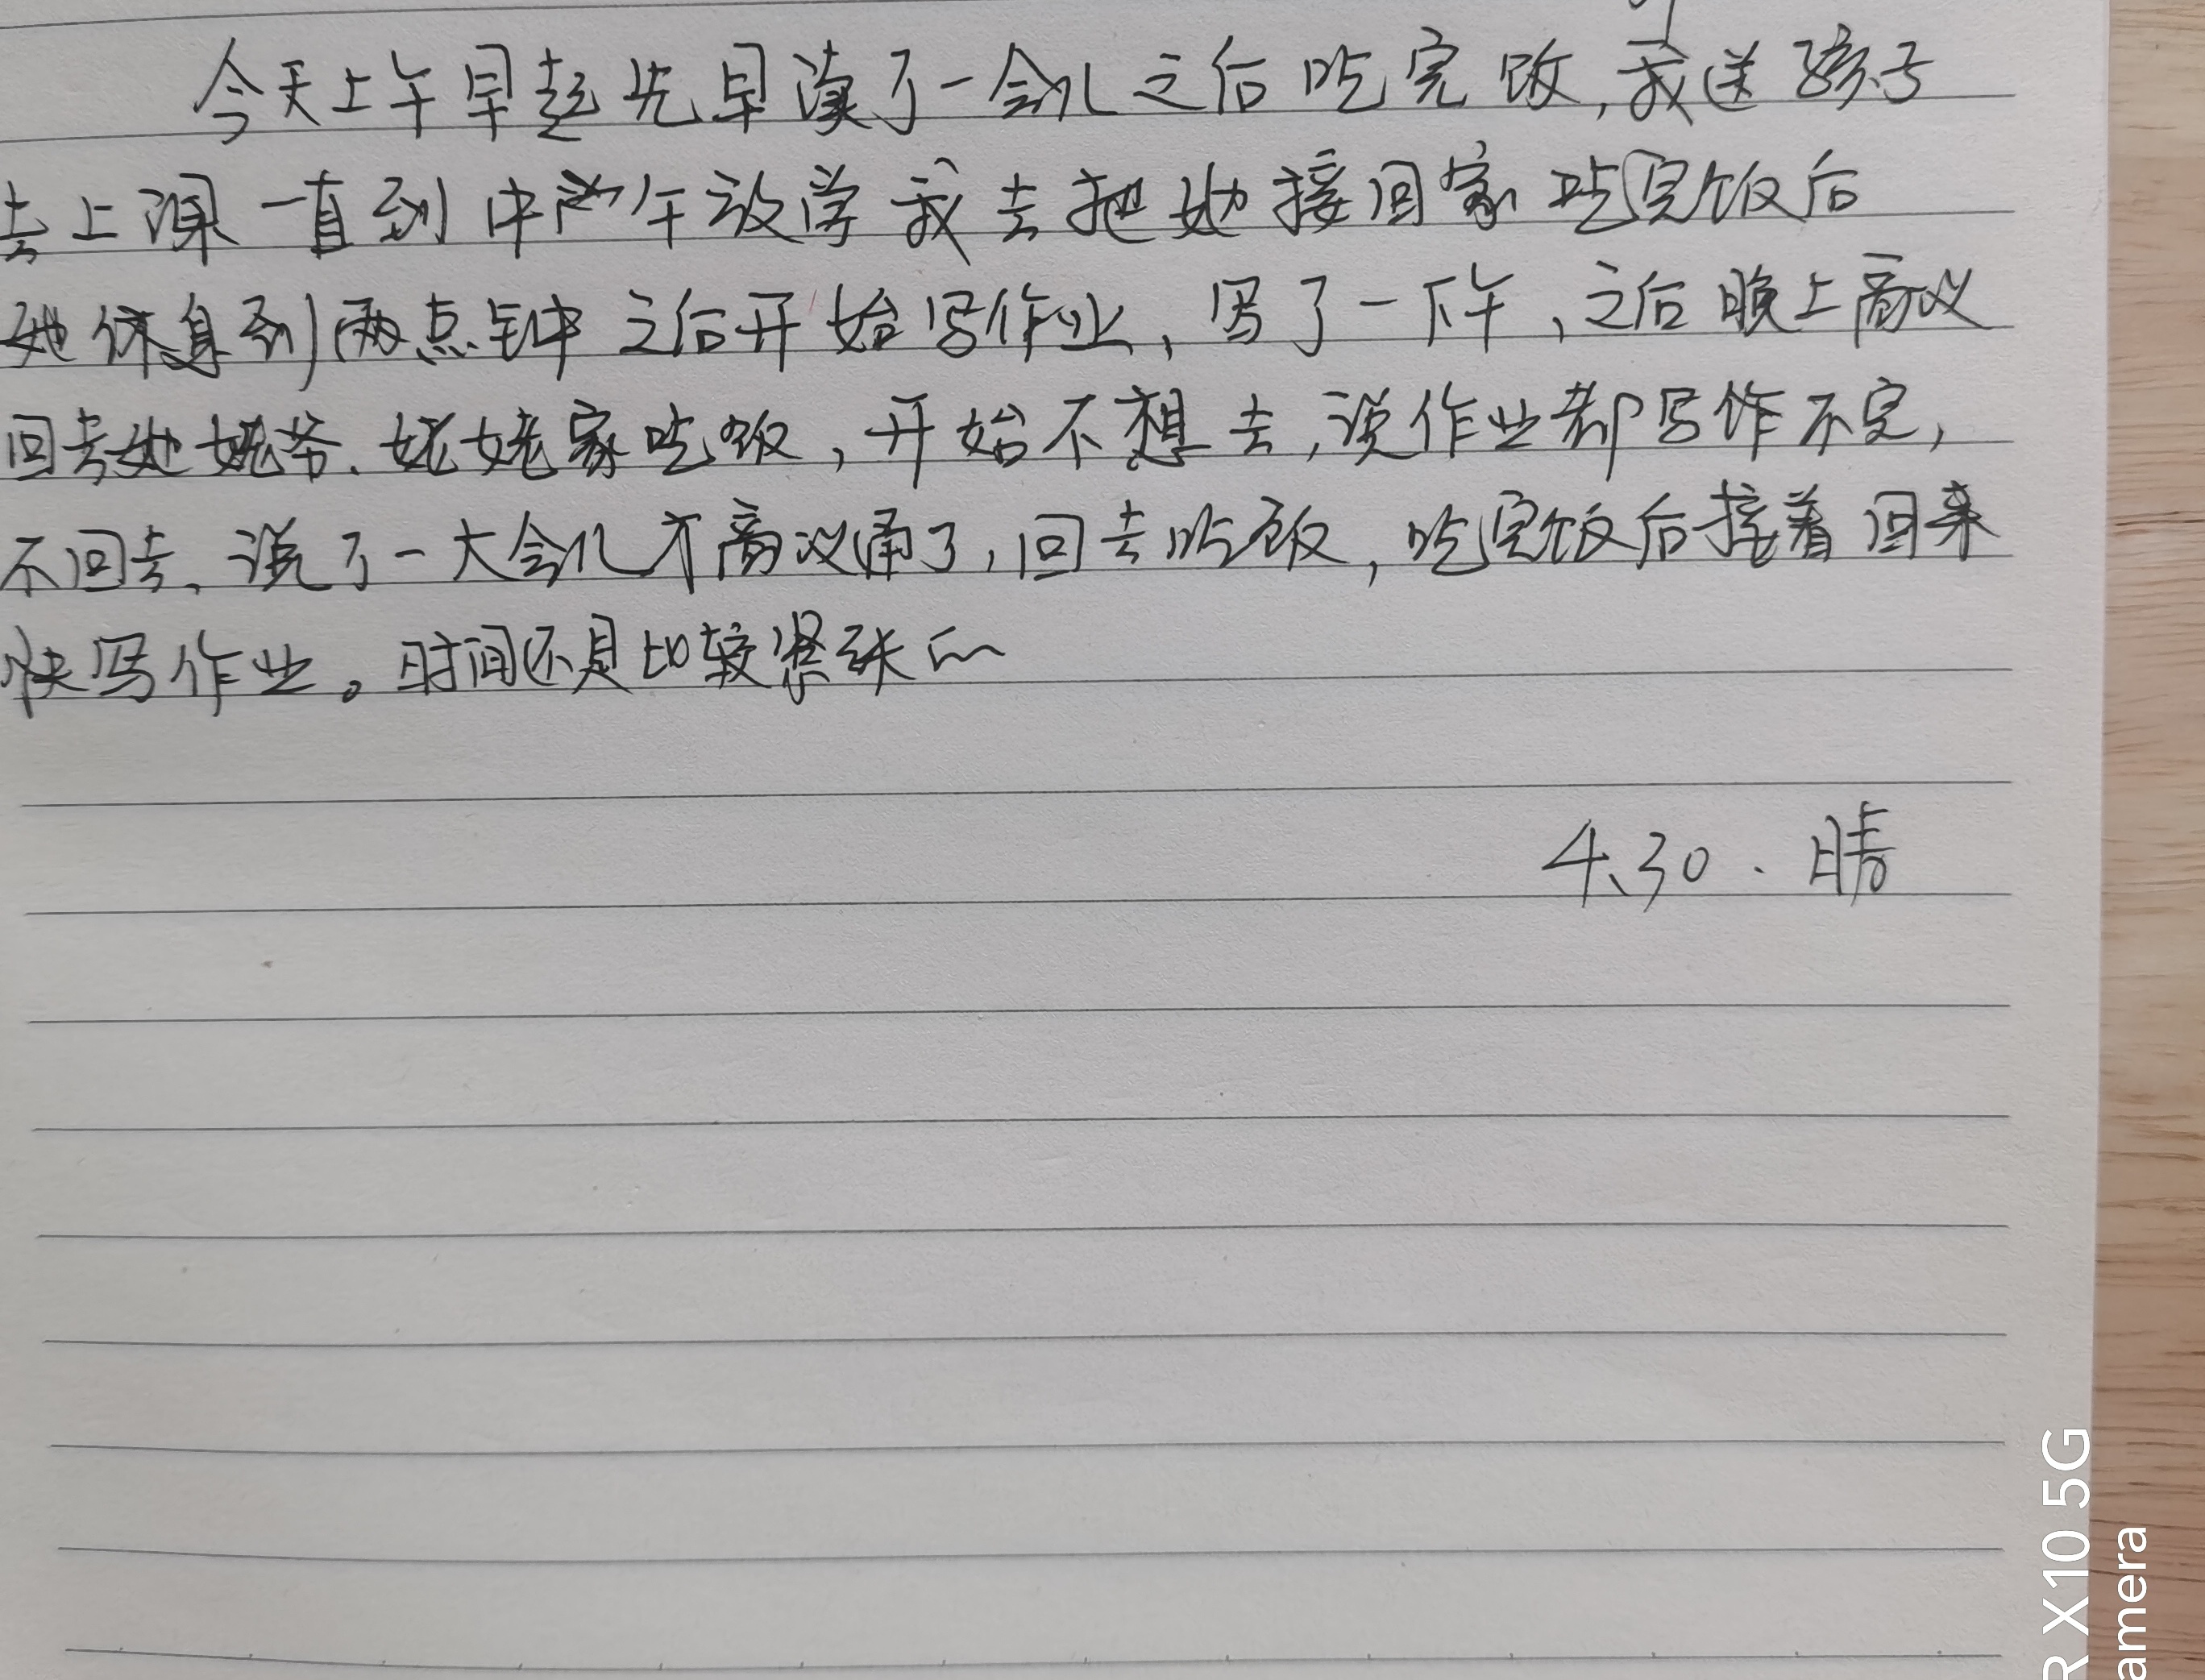 今天上午早起先早读了一会儿之后吃完饭,我送孩子
去上课一直到中午放学我去把她接回家吃完饭后
她休息到两点钟之后开始写作业,写了一下午,之后晚上商议
回去她姥爷、姥姥家吃饭,开始不想去,说作业都写作不完,
不回去,说了一大会儿才商议通了,回去吃饭,吃完饭后接着回来
快写作业。时间还是比较紧张的
4.30.晴
R X10 5G
amera